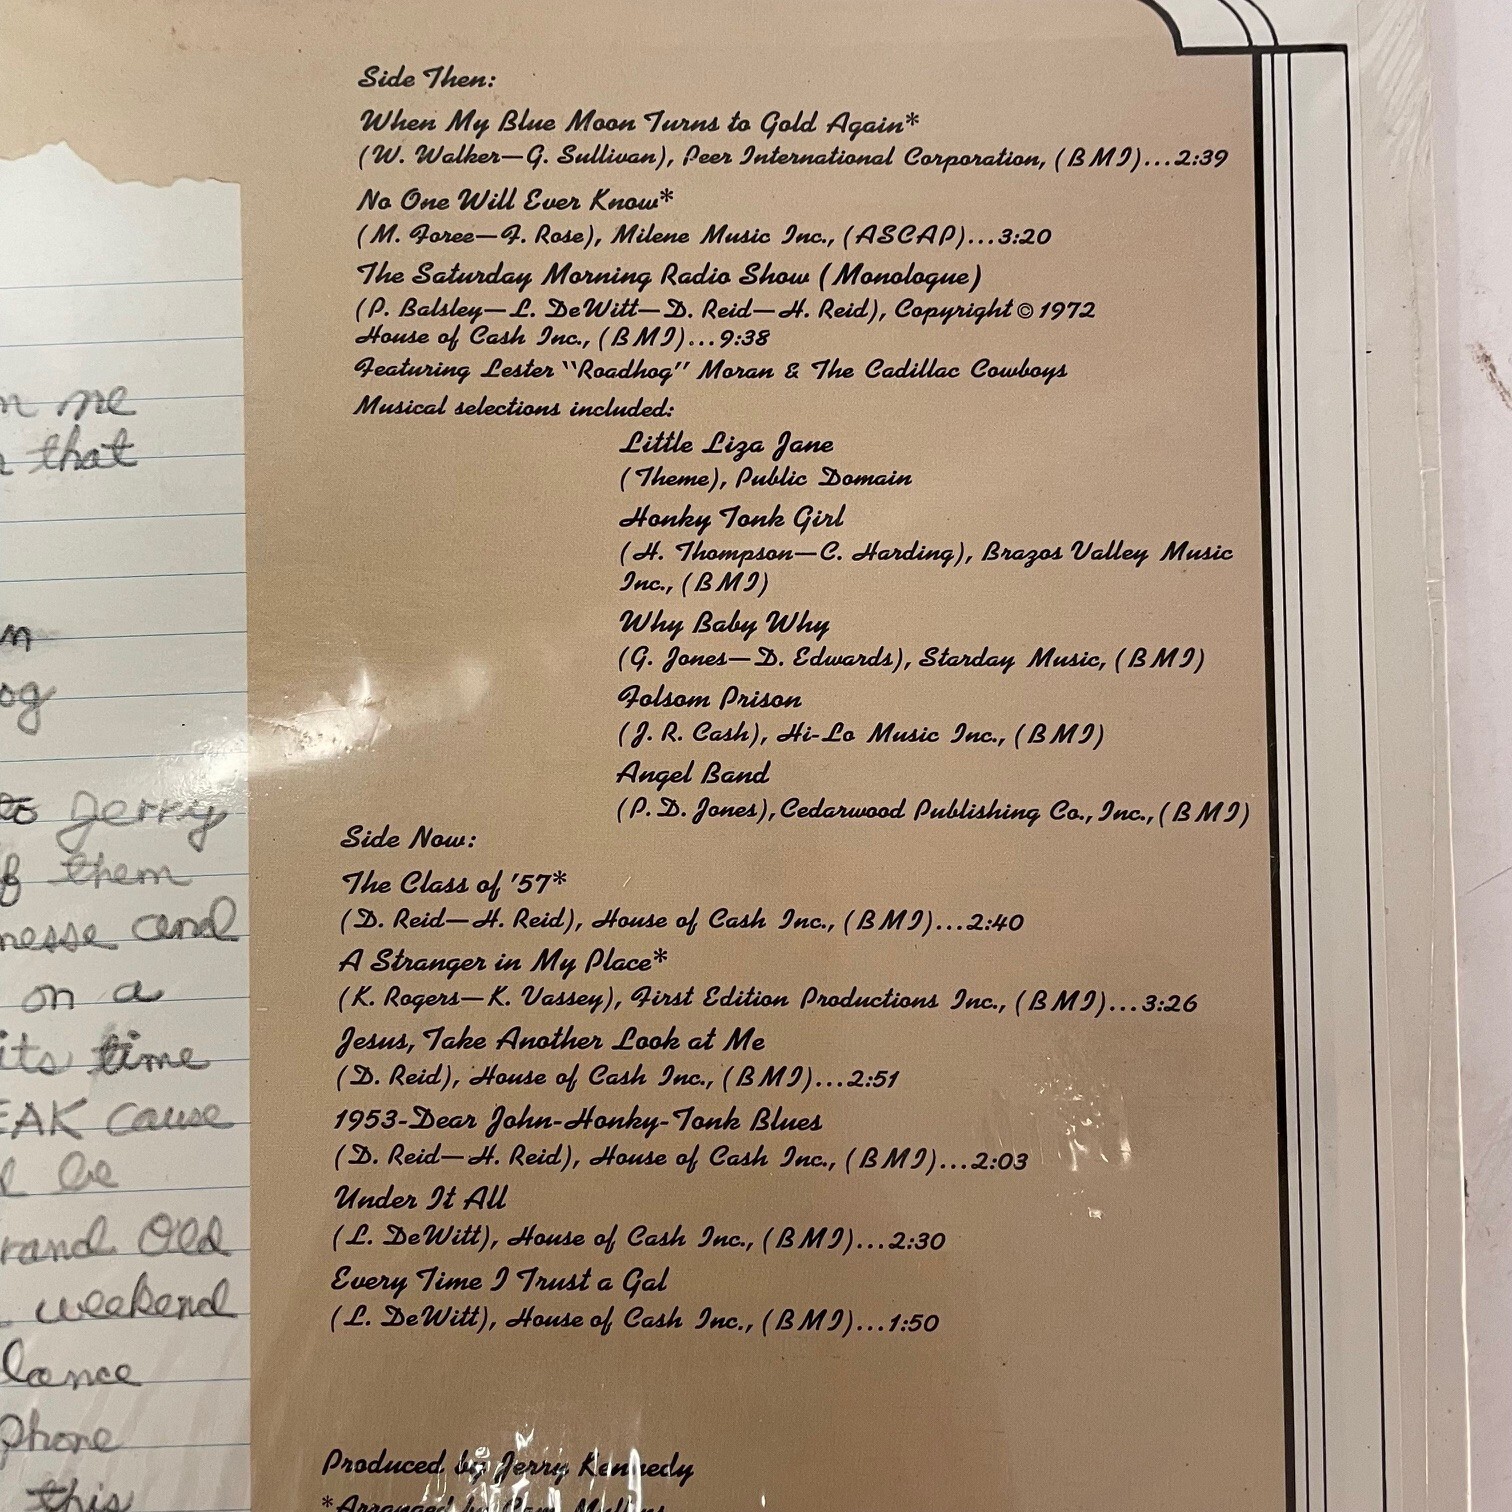 Side Then:
When My Blue Moon Turns to Gold Again*
(W. Walker—G. Sullivan), Peer International Corporation, (BMI)...2:39
No One Will Ever Know*
(M. Foree—F. Rose), Milene Music Inc., (ASCAP)...3:20
The Saturday Morning Radio Show (Monologue)
(P. Balsley—L. DeWitt—D. Reid—H. Reid), Copyright © 1972
House of Cash Inc., (BMI)...9:38
Featuring Lester "Roadhog" Moran & The Cadillac Cowboys
Musical selections included:
Little Liza Jane
(Theme), Public Domain
Honky Tonk Girl
(H. Thompson—C. Harding), Brazos Valley Music
Inc., (BMI)
Why Baby Why
(G. Jones—D. Edwards), Starday Music, (BMI)
Folsom Prison
(J. R. Cash), Hi-Lo Music Inc., (BMI)
Angel Band
(P. D. Jones), Cedarwood Publishing Co., Inc., (BMI)
Side Now:
The Class of '57*
(D. Reid—H. Reid), House of Cash Inc., (BMI)...2:40
A Stranger in My Place*
(K. Rogers—K. Vassey), First Edition Productions Inc., (BMI)...3:26
Jesus, Take Another Look at Me
(D. Reid), House of Cash Inc., (BMI)...2:51
1953-Dear John-Honky-Tonk Blues
(D. Reid—H. Reid), House of Cash Inc., (BMI)...2:03
Under It All
(L. DeWitt), House of Cash Inc., (BMI)...2:30
Every Time I Trust a Gal
(L. DeWitt), House of Cash Inc., (BMI)...1:50
Produced by Jerry Kennedy
*Arranged by Cam Mullins
that
to Jerry
them
and
on a
its time
cause
be
Old
weekend
Phone
this